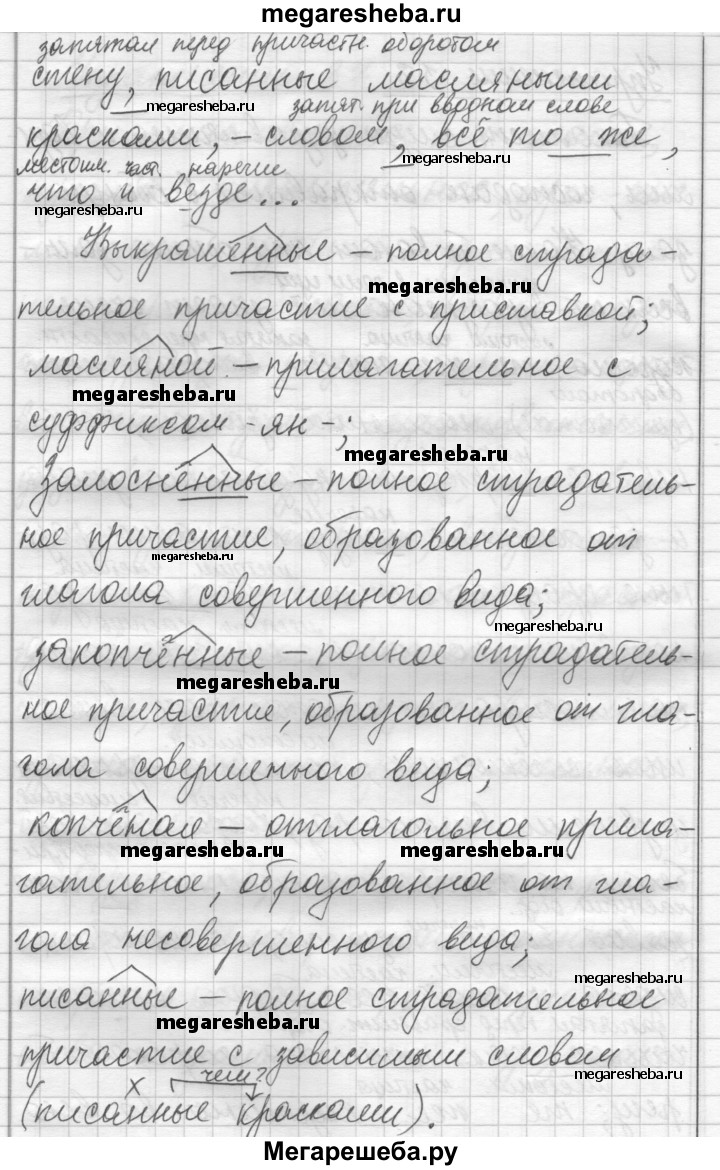 megaresheba.ru
запятая перед причастн. оборотом
стену, писанные масляными
megaresheba.ru запят. при вводном слове
красками, – словом, всё то же,
megaresheba.ru
местоим. част. наречие
что и везде...
megaresheba.ru
Выкрашенные – полное страда-
megaresheba.ru
тельное причастие с приставкой;
масляной – прилагательное с
megaresheba.ru
суффиксом -ян-;
megaresheba.ru
Залоснённые – полное страдатель-
ное причастие, образованное от
megaresheba.ru
глагола совершенного вида;
megaresheba.ru
закопчённые – полное страдатель-
megaresheba.ru
ное причастие, образованное от гла-
гола совершенного вида;
копчёная – отглагольное прила-
megaresheba.ru megaresheba.ru
гательное, образованное от гла-
гола несовершенного вида;
megaresheba.ru
писанные – полное страдательное
megaresheba.ru
причастие с зависимым словом
megaresheba.ru
х чем?
(писанные красками).
Мегарешеба.ру